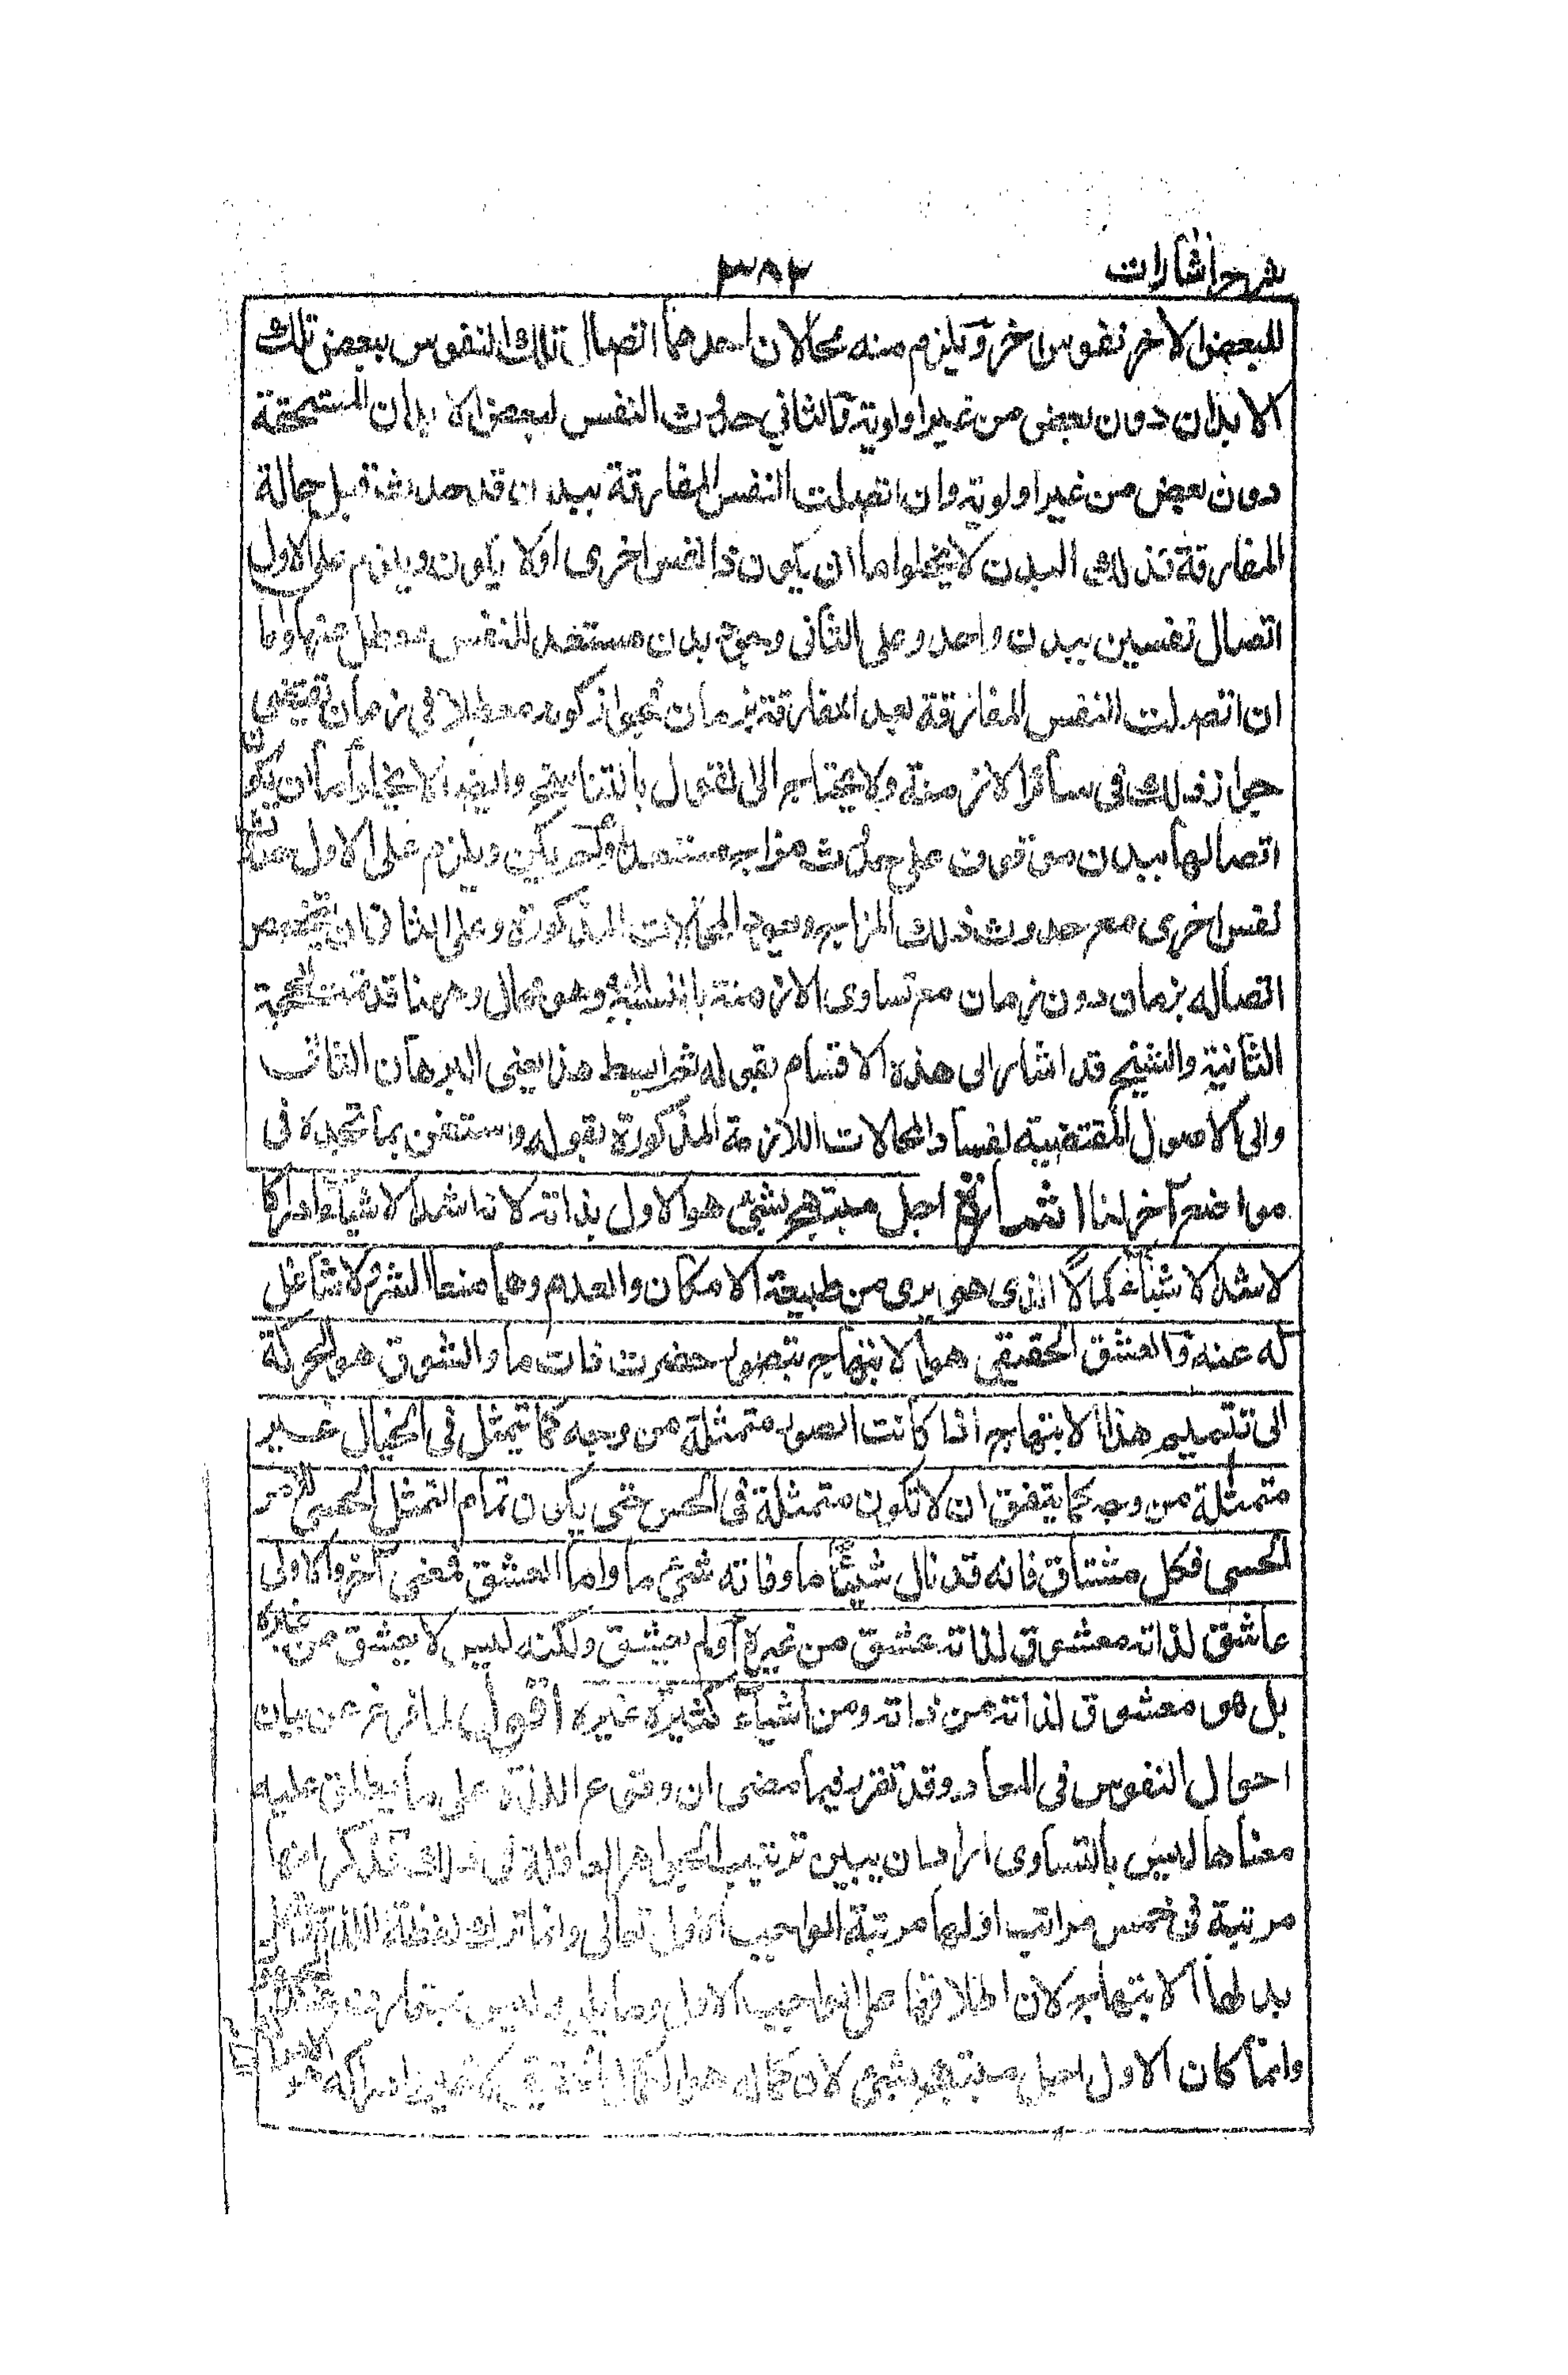 شرح اشارات
٣٨٢
للبعض الاخر نفوس اخر ويلزم منه محالان احدهما اتصال تلك النفوس ببعض تلك
الابدان دون بعض من غير اولوية والثاني حدوث النفس لبعض الابدان المستحقة
دون بعض من غير اولوية وان اتصلت النفس المفارقة ببدن قد حدث قبل حالة
المفارقة فذلك البدن لا يخلوا ما ان يكون ذا نفس اخرى اولا يكون ويلزم على الاول
اتصال نفسين ببدن واحد وعلى الثاني وجود بدن مستعد للنفس معطل عنها واما
ان اتصلت النفس المفارقة بعد المفارقة بزمان فجواز كونه معطلا في زمان يقتضي
جواز ذلك في سائر الازمنة ولا يحتاج الى القول بالتناسخ وايضا لا يخلو اما ان يكون
اتصالها ببدن موقوف على حدوث مزاج مستعد او لم يكن ويلزم على الاول حدوث
نفس اخرى مع حدوث ذلك المزاج ويعود المحالات المذكورة وعلى الثاني ان يتخصص
اتصاله بزمان دون زمان مع تساوى الازمنة بالنسبة اليه وهو محال وههنا قد تمت الحجة
الثانية والشيخ قد اشار الى هذه الاقسام بقوله ثم ابسط هذا يعنى البرهان الثانى
والى الاصول المقتضية لفساد المحالات اللازمة المذكورة بقوله واستعن بما تجده فى
مواضع آخر لنا اشارة اجل مبتهج بشئ هو الاول بذاته لانه اشد الاشياء ادراكا
لاشد الاشياء كمالا الذى هو برى من طبيعة الامكان والعدم وهما منبعا الشر ولا شاغل
له عنه والعشق الحقيقى هو الابتهاج بتصور حضرت ذات ما والشوق هو الحركة
الى تتميم هذا الابتهاج اذا كانت الصورة متمثلة من وجه كما يتمثل فى الخيال غير
متمثلة من وجه كما يتفق ان لا تكون متمثلة فى الحس حتى يكون تمام التمثل الحسى للامر
الحسى فكل مشتاق فانه قد نال شيئا ما وفاته شئ ما واما العشق فمعنى آخر والاول
عاشق لذاته معشوق لذاته عشق من غيره او لم يعشق ولكنه ليس لا يعشق من غيره
بل هو معشوق لذاته من ذاته ومن اشياء كثيرة غيره اقول لما فرغ عن بيان
احوال النفوس فى المعاد وقد تقرر فيما مضى ان وقوع اللذة على ما يطلق عليه
معناها ليس بالتساوى اراد ان يبين ترتيب الجواهر العاقلة فى ذلك فذكر انها
مرتبة فى خمس مراتب اولها مرتبة الواجب الاول تعالى وانما ترك لفظة اللذة
بدلها الابتهاج لان اطلاقها على الواجب الاول وما يليه ليس
وانما كان الاول اجل مبتهج بشئ لان كماله هو الكمال الحقيقى